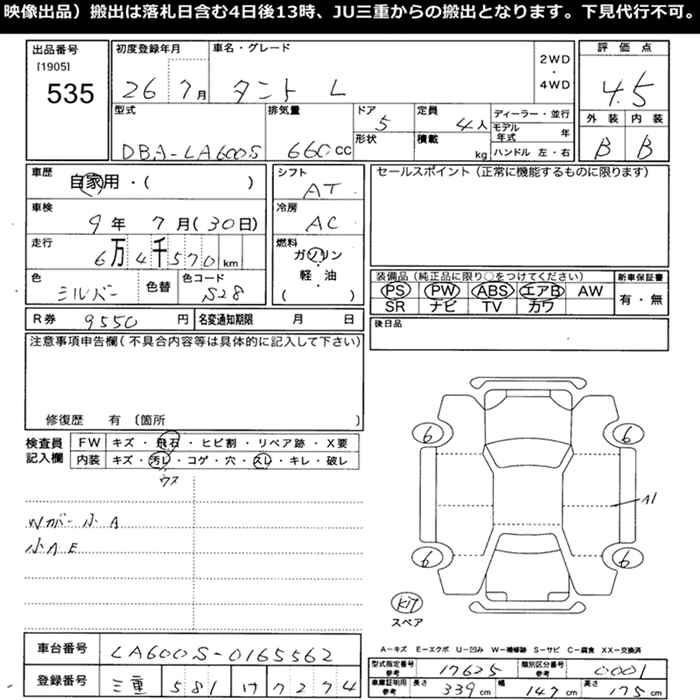 映像出品）搬出は落札日含む4日後13時、JU三重からの搬出となります。下見代行不可。
出品番号
[1905]
535
初度登録年月
26 7月
車名・グレード
タント L
2WD
・
4WD
評価点
4.5
外装 内装
B B
型式
DBA-LA600S
排気量
660cc
ドア
5
形状
定員
4人
積載
kg
ディーラー・並行
モデル年式 年
ハンドル 左・右
車歴
自家用・( )
車検
9年 7月(30日)
走行
6万4千570km
色
シルバー
色替
色コード
S28
シフト
AT
冷房
AC
燃料
ガソリン
・
軽・油
( )
セールスポイント（正常に機能するものに限ります）
装備品（純正品に限り○をつけてください）
PS PW ABS エアB AW
SR ナビ TV カワ
新車保証書
有・無
後日品
R券 9550円
名変通知期限 月 日
注意事項申告欄（不具合内容等は具体的に記入して下さい）
修復歴 有 〔箇所
検査員
記入欄
FW キズ・飛石・ヒビ割・リペア跡・X要
内装 キズ・汚レ・コゲ・穴・スレ・キレ・破レ
ウス
小A
小AE
6 6
A1
6 6
スペア
A-キズ E-エクボ U-凹み W-補修跡 S-サビ C-腐食 XX-交換済
車台番号
LA600S-0165562
登録番号
三重 581 7274
型式指定番号
参考
17625
類別区分番号
参考
0001
車庫証明用
参考
長さ 339cm
幅 147cm
高さ 175cm